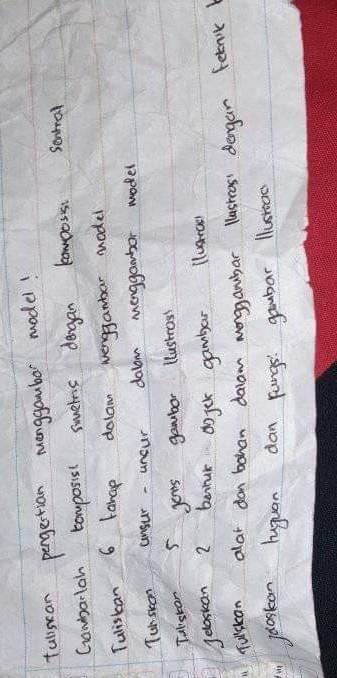 tuliskan pengertian menggambar model!
Gambarlah komposisi simetris dengan komposisi sentral
Tuliskan 6 tahap dalam menggambar model
Tuliskan unsur - unsur dalam menggambar model
Tuliskan 5 jenis gambar Ilustrasi
Jelaskan 2 bentuk objek gambar Ilustrasi
Tuliskan alat dan bahan dalam menggambar Ilustrasi dengan teknik
jelaskan tujuan dan fungsi gambar Ilustrasi